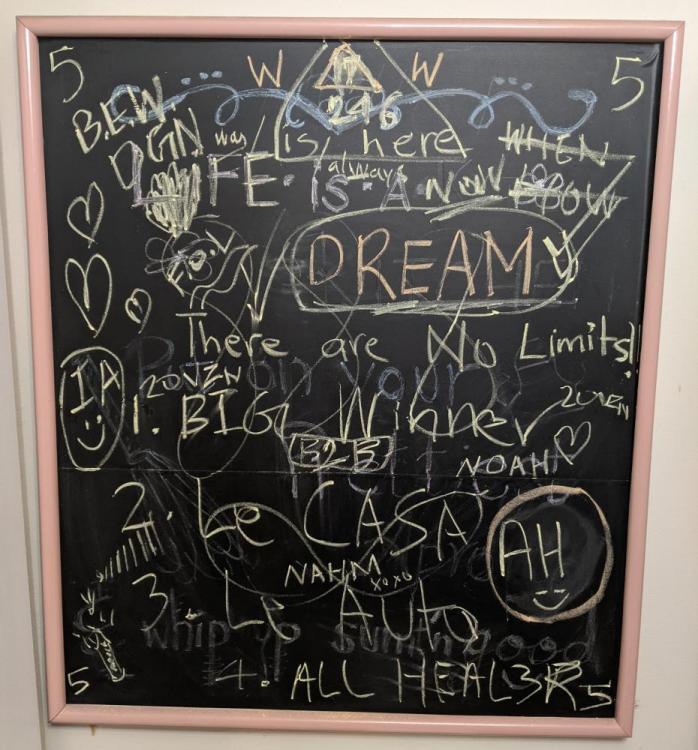 5 W W 5
246
B.E.W
DGN was is here WHEN
always
LIFE IS A NOW
DREAM
There are No Limits!!
Put on your
IA 20VZN 20VZN
1. BIG Winner
B2B NOAH
2. Le CASA
AH
NAHM xoxo
3. LE AUTO
whip up sumthin good
4. ALL HEAL3R
5 5